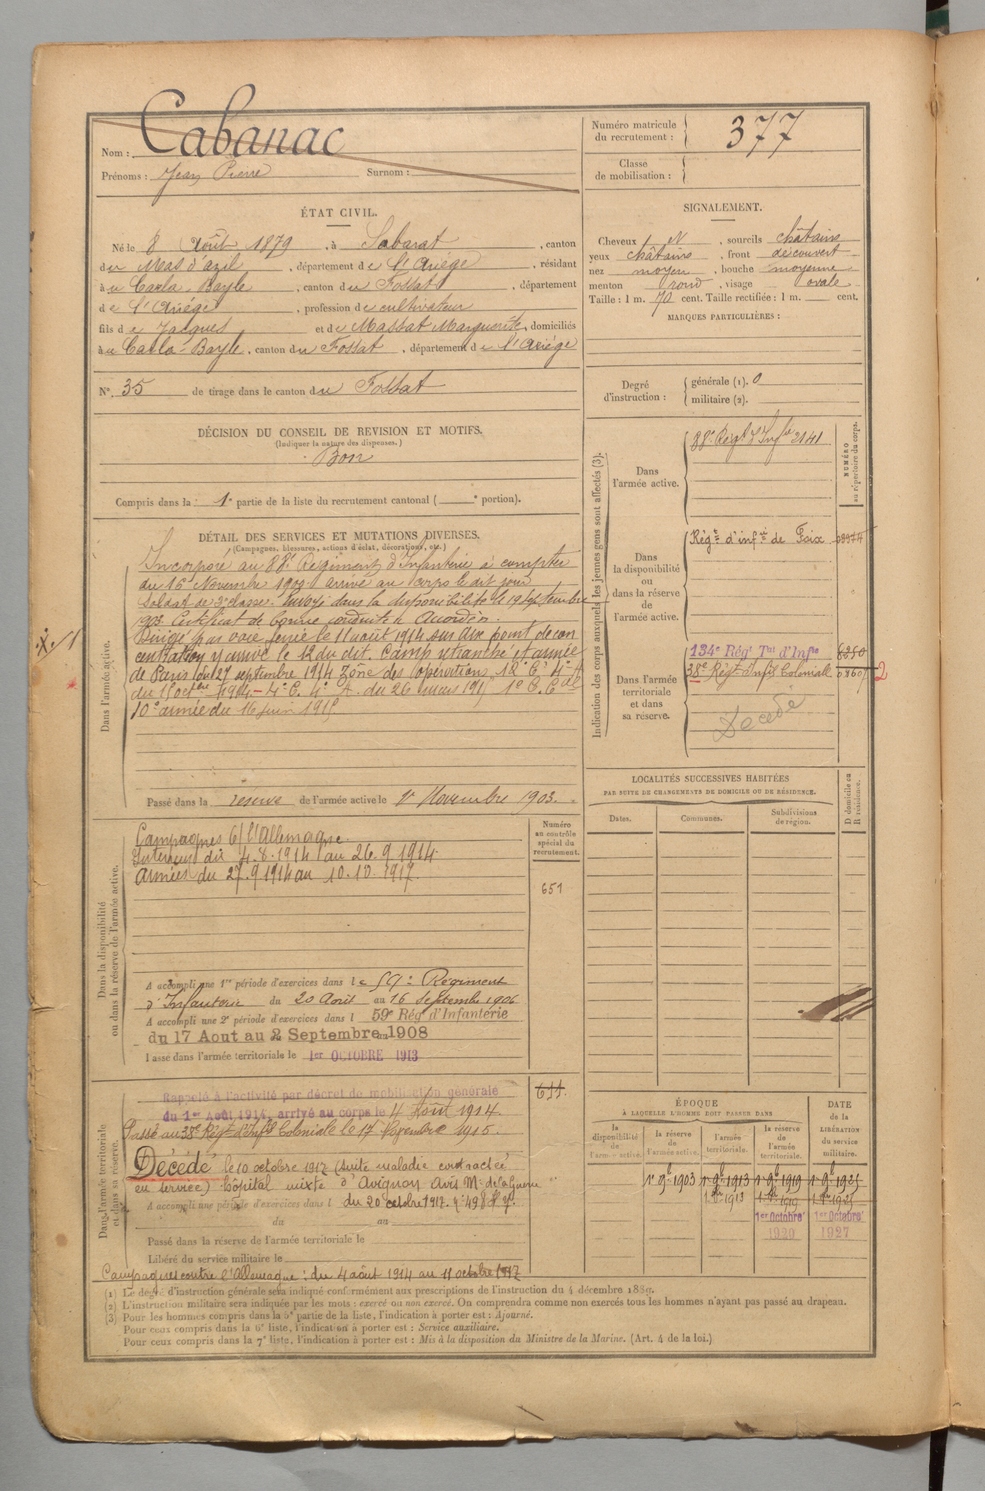 Nom : Cabanac
Prénoms : Jean Pierre Surnom :
Numéro matricule du recrutement : 377
Classe de mobilisation :
ÉTAT CIVIL.
Né le 8 Août 1879, à Sabarat, canton
du Mas d'azil, département de l'Ariège, résidant
à u Carla-Bayle, canton du Fossat, département
de l'Ariège, profession de cultivateur
fils de Jacques et de Massat Marguerite, domiciliés
à u Carla-Bayle, canton du Fossat, département de l'Ariège
N° 35 de tirage dans le canton du Fossat
SIGNALEMENT.
Cheveux N, sourcils châtains
yeux châtains, front découvert
nez moyen, bouche moyenne
menton rond, visage ovale
Taille : 1 m. 70 cent. Taille rectifiée : 1 m. cent.
MARQUES PARTICULIÈRES :
Degré d'instruction : générale (1). 0
militaire (2).
DÉCISION DU CONSEIL DE REVISION ET MOTIFS.
(Indiquer la nature des dispenses.)
Bon
Compris dans la 1e partie de la liste du recrutement cantonal ( e portion).
DÉTAIL DES SERVICES ET MUTATIONS DIVERSES.
(Campagnes, blessures, actions d'éclat, décorations, etc.)
Dans l'armée active.
Incorporé au 88e Régiment d'Infanterie à compter
du 16 Novembre 1900 arrivé au corps le dit jour
Soldat de 2e classe. Envoyé dans la disponibilité le 19 septembre
1903 Certificat de bonne conduite Accordé.
Dirigé par voie ferrée le 11 août 1914 sur dix point de con
centration y arrivé le 12 du dit. Camp retranché et armée
de Paris du 27 septembre 1914 Zône des opérations
du 1er octbre 1914 - 4e C. 4e A. du 26 mars 191
10e armée du 16 juin 1915
Passé dans la réserve de l'armée active le 1er Novembre 1903.
Dans la disponibilité ou dans la réserve de l'armée active.
Campagnes C/ l'Allemagne
Intérieur du 4.8.1914 au 26.9.1914
Armées du 27.9.1914 au 10.10.1917
Numéro au contrôle spécial du recrutement.
651
A accompli une 1re période d'exercices dans le 59e Régiment
d'Infanterie du 20 Août au 16 Septembre 1906
A accompli une 2e période d'exercices dans l 59e Rég d'Infanterie
du 17 Aout au 2 Septembre au 1908
Passé dans l'armée territoriale le 1er OCTOBRE 1913
Dans l'armée territoriale et dans sa réserve.
Rappelé à l'activité par décret de mobilisation générale
du 1er Août 1914, arrivé au corps le 4 Août 1914
Passé au 38e Régt d'Inf Coloniale le 17 Novembre 1915.
Décédé le 10 octobre 1917 (suite maladie contractée
en service) hôpital mixte d'Avignon Avis M. de la Guerre
A accompli une période d'exercices dans l du 20 octobre 1917
du au
Passé dans la réserve de l'armée territoriale le
Libéré du service militaire le
Campagnes contre l'Allemagne : du 4 août 1914 au 11 octobre 1917
Indication des corps auxquels les jeunes gens sont affectés (3).
NUMÉRO au répertoire du corps.
Dans l'armée active.
88e Régt d'Infie 2141
Dans la disponibilité ou dans la réserve de l'armée active.
Régt d'infie de Foix
Dans l'armée territoriale et dans sa réserve.
134e Régt Tal d'Infie 6250
38e Régt Infie Coloniale 2
Décédé
LOCALITÉS SUCCESSIVES HABITÉES
PAR SUITE DE CHANGEMENTS DE DOMICILE OU DE RÉSIDENCE.
Dates. Communes. Subdivisions de région. D domicile ou R résidence.
ÉPOQUE
À LAQUELLE L'HOMME DOIT PASSER DANS
DATE DE LA LIBÉRATION du service militaire.
la disponibilité de l'armée active. la réserve de l'armée active. l'armée territoriale. la réserve de l'armée territoriale.
1er 9b 1903 1er 9b 1913 1er 9b 1919 1er 9b 1925
1er 8b 1913 1er 8b 1919 1er 8b 1925
1er Octobre 1920 1er Octobre 1927
(1) Le degré d'instruction générale sera indiqué conformément aux prescriptions de l'instruction du 4 décembre 1889.
(2) L'instruction militaire sera indiquée par les mots : exercé ou non exercé. On comprendra comme non exercés tous les hommes n'ayant pas passé au drapeau.
(3) Pour les hommes compris dans la 5e partie de la liste, l'indication à porter est : Ajourné.
Pour ceux compris dans la 6e liste, l'indication à porter est : Service auxiliaire.
Pour ceux compris dans la 7e liste, l'indication à porter est : Mis à la disposition du Ministre de la Marine. (Art. 4 de la loi.)